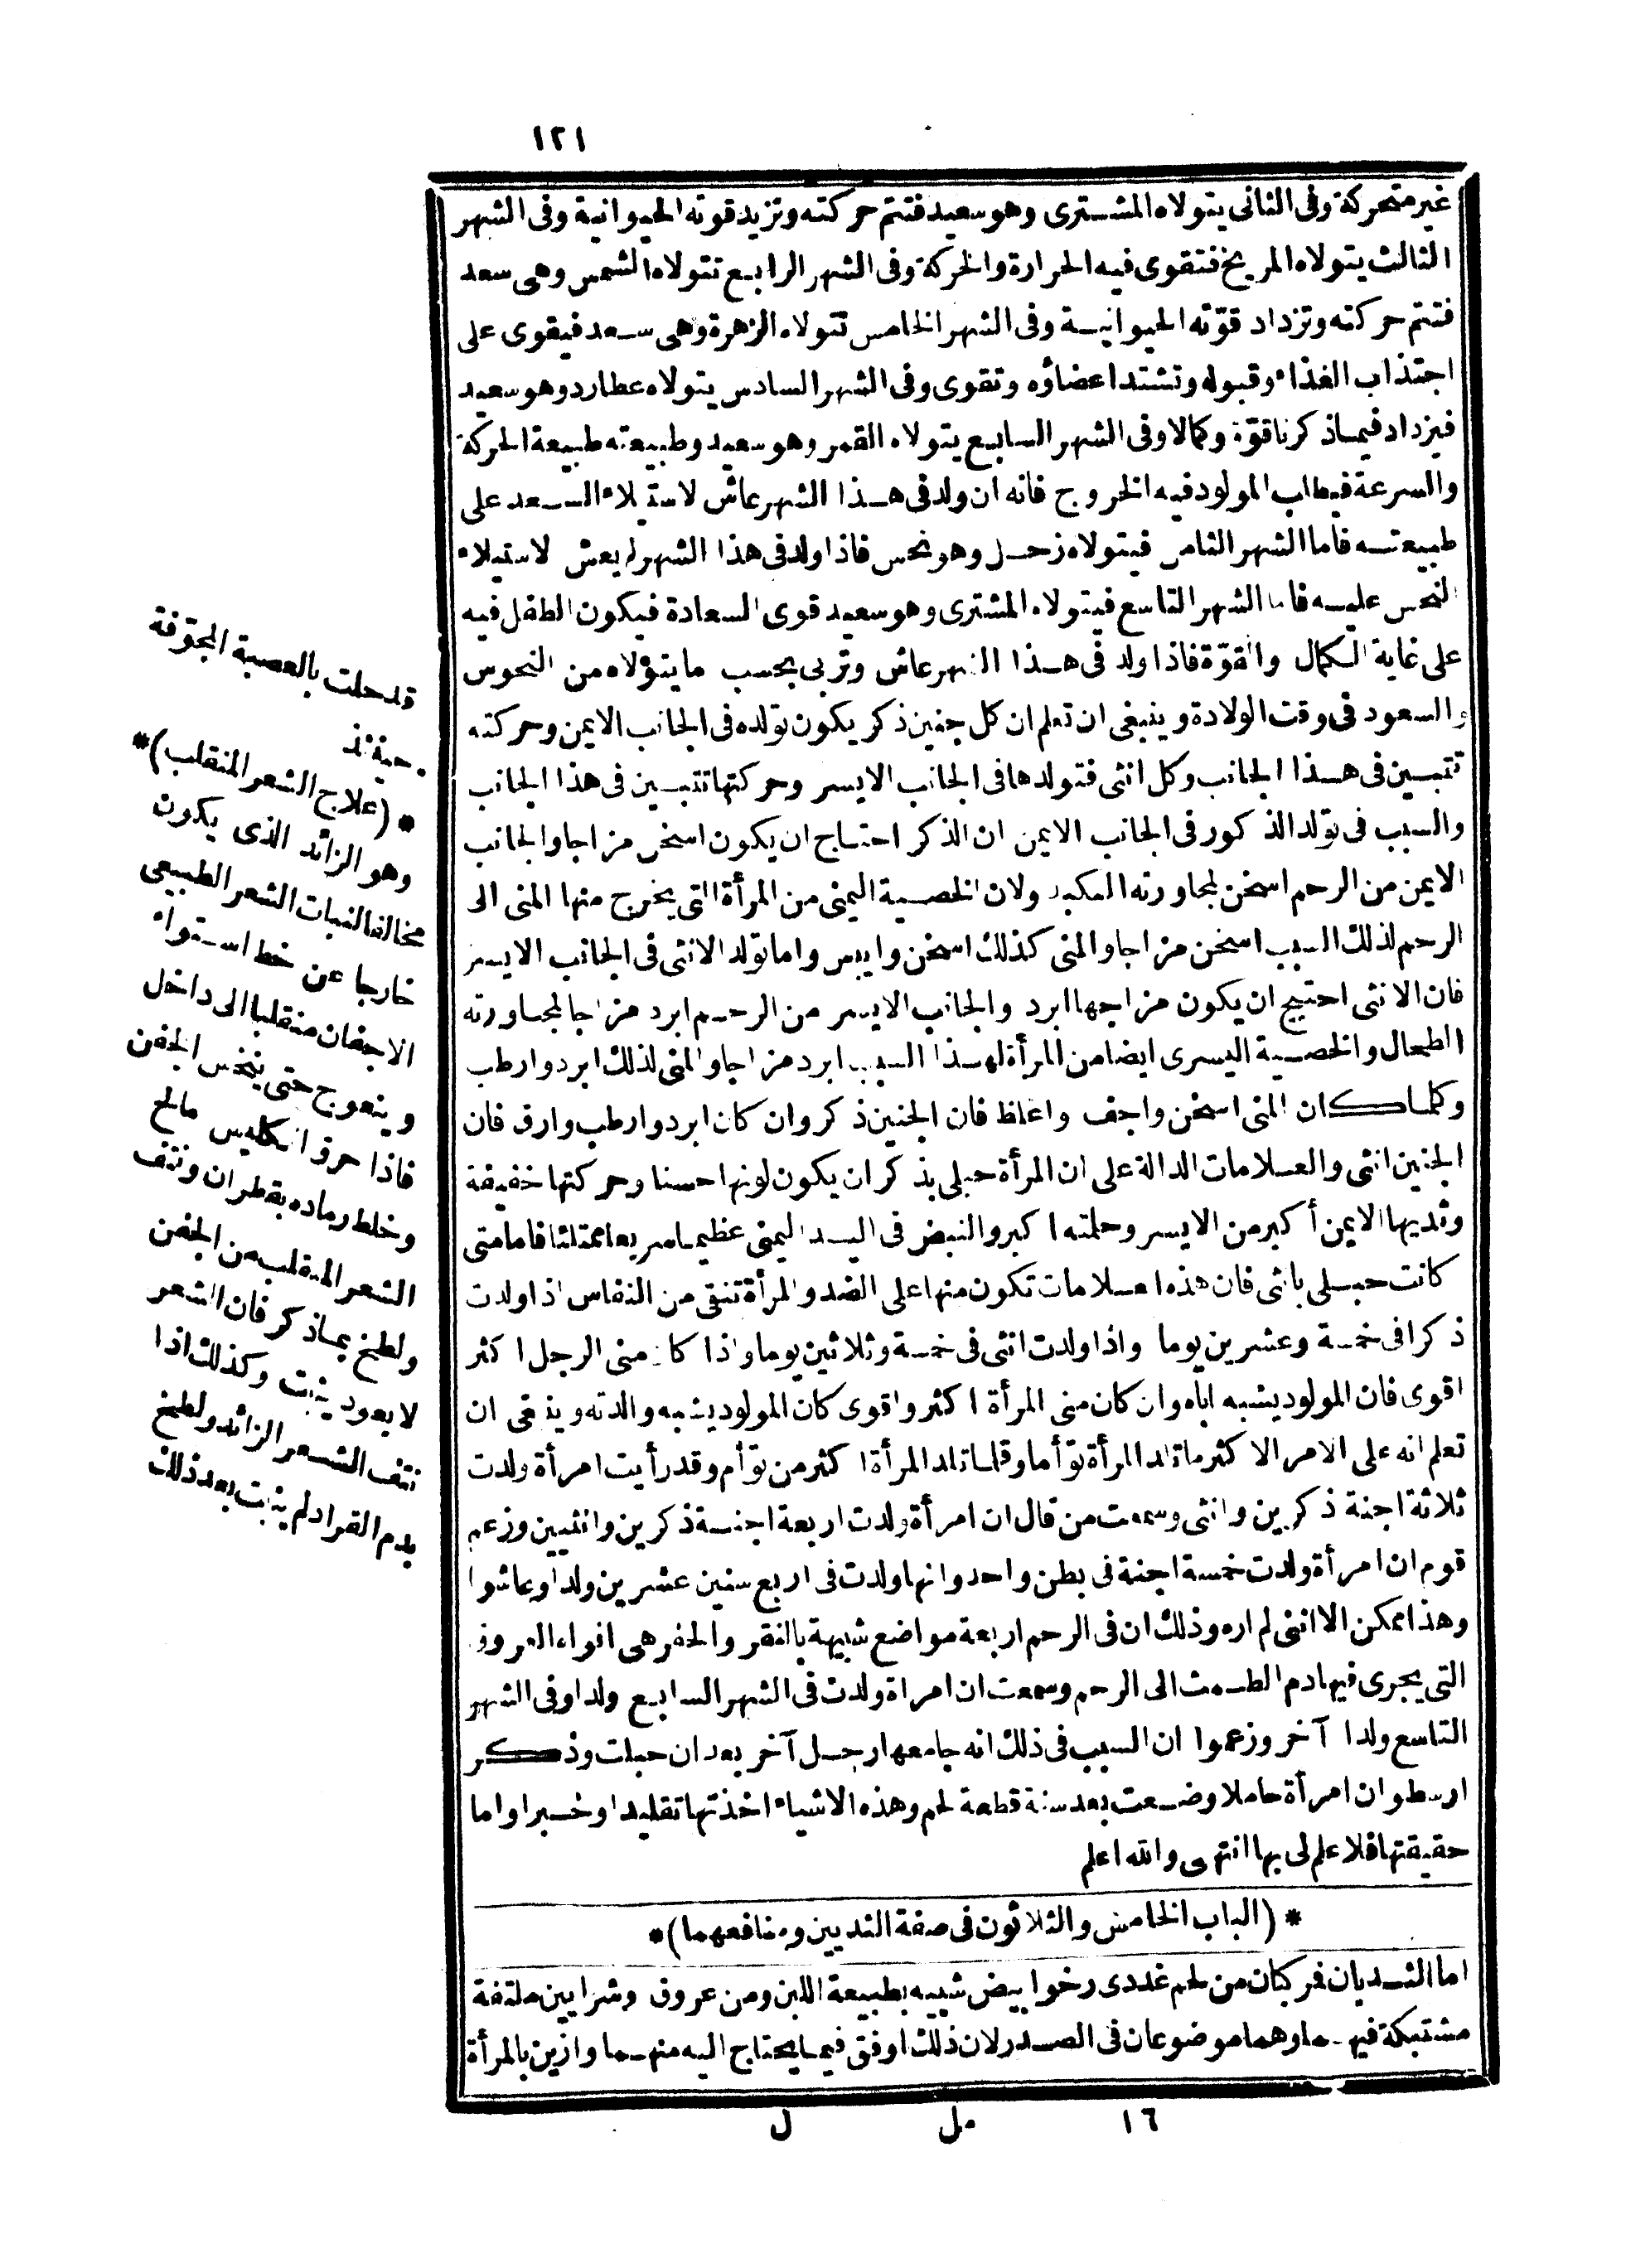 ١٢١
غير متحركة وفى الثانى يتولاه المشترى وهو سعيد فتتم حركته وتزيد قوته الحيوانية وفى الشهر
الثالث يتولاه المريخ فتقوى فيه الحرارة والحركة وفى الشهر الرابع تتولاه الشمس وهى سعد
فتتم حركته وتزداد قوّته الحيوانية وفى الشهر الخامس تتولاه الزهرة وهى سعد فيقوى على
اجتذاب الغذاء وقبوله وتشتد اعضاؤه وتقوى وفى الشهر السادس يتولاه عطارد وهو سعيد
فيزداد فيما ذكرنا قوّة وكمالا وفى الشهر السابع يتولاه القمر وهو سعيد وطبيعته طبيعة الحركة
والسرعة فيطلب المولود فيه الخروج فانه ان ولد فى هذا الشهر عاش لاستيلاء السعد على
طبيعته فاما الشهر الثامن فيتولاه زحل وهو نحس فاذا ولد فى هذا الشهر لم يعش لاستيلاء
النحس عليه فاما الشهر التاسع فيتولاه المشترى وهو سعيد قوى السعادة فيكون الطفل فيه
على غاية الكمال والقوّة فاذا ولد فى هذا الشهر عاش وتربى بحسب ما يتولاه من النحوس
والسعود فى وقت الولادة وينبغى ان تعلم ان كل جنين ذكر يكون تولده فى الجانب الايمن وحركته
تتبين فى هذا الجانب وكل انثى فتولدها فى الجانب الايسر وحركتها تتبين فى هذا الجانب
والسبب فى تولد الذكور فى الجانب الايمن ان الذكر احتاج ان يكون اسخن مزاجا والجانب
الايمن من الرحم اسخن لمجاورته الكبد ولان الخصية اليمنى من المرأة التى يخرج منها المنى الى
الرحم لذلك السبب اسخن مزاجا والمنى كذلك اسخن وايبس واما تولد الانثى فى الجانب الايسر
فان الانثى احتيج ان يكون مزاجها ابرد والجانب الايسر من الرحم ابرد مزاجا لمجاورته
الطحال والخصية اليسرى ايضا من المرأة لهذا السبب ابرد مزاجا والمنى لذلك ابرد وارطب
وكلما كان المنى اسخن واجف واغلظ فان الجنين ذكر وان كان ابرد وارطب وارق فان
الجنين انثى والعلامات الدالة على ان المرأة حبلى بذكر ان يكون لونها حسنا وحركتها خفيفة
وثديها الايمن أكبر من الايسر وحلمته اكبر والنبض فى اليد اليمنى عظيما سريعا ممتلئا فاما متى
كانت حبلى بانثى فان هذه العلامات تكون منها على الضد والمرأة تنقى من النفاس اذا ولدت
ذكرا فى خمسة وعشرين يوما واذا ولدت انثى فى خمسة وثلاثين يوما واذا كان منى الرجل اكثر
اقوى فان المولود يشبه اباه وان كان منى المرأة اكثر واقوى كان المولود يشبه والدته وينبغى ان
تعلم انه على الامر الاكثر ما تلد المرأة توّأما وقلما تلد المرأة اكثر من توّأم وقد رأيت امرأة ولدت
ثلاثة اجنة ذكرين وانثى وسمعت من قال ان امرأة ولدت اربعة اجنة ذكرين وانثيين وزعم
قوم ان امرأة ولدت خمسة اجنة فى بطن واحد وانها ولدت فى اربع سنين عشرين ولدا وعاشوا
وهذا ممكن الا اننى لم اره وذلك ان فى الرحم اربعة مواضع شبيهة بالنقر والحفر هى افواه العروق
التى يجرى فيها دم الطمث الى الرحم وسمعت ان امراة ولدت فى الشهر السابع ولدا وفى الشهر
التاسع ولدا آخر وزعموا ان السبب فى ذلك انه جامعها رجل آخر بعد ان حبلت وذكر
ارسطو ان امرأة حاملا وضعت بعد سنة قطعة لحم وهذه الاشياء اخذتها تقليدا وخبرا واما
حقيقتها فلا علم لى بها انتهى والله اعلم
* (الباب الخامس والثلاثون فى صفة الثديين ومنافعهما) *
اما الثديان فركبان من لحم غددى رخو ابيض شبيه بطبيعة اللبن ومن عروق وشرايين ملتفة
مشتبكة فيهما وهما موضوعان فى الصدر لان ذلك اوفق فيما يحتاج اليه منهما وازين بالمرأة
١٦ مل ل
قد حلت بالعصبة المجوّفة
حينئذ
* (علاج الشعر المنقلب) *
وهو الزائد الذى يكون
مخالفا لنبات الشعر الطبيعى
خارجا عن خط استواء
الاجفان منقلبا الى داخل
وينعوج حتى ينخس الجفن
فاذا حرق انكليس مالح
وخلط رماده بقطران ونتف
الشعر المنقلب من الجفن
ولطخ بماذكر فان الشعر
لا يعود ينبت وكذلك اذا
نتف الشعر الزائد ولطخ
بدم القراد لم ينبت بعد ذلك